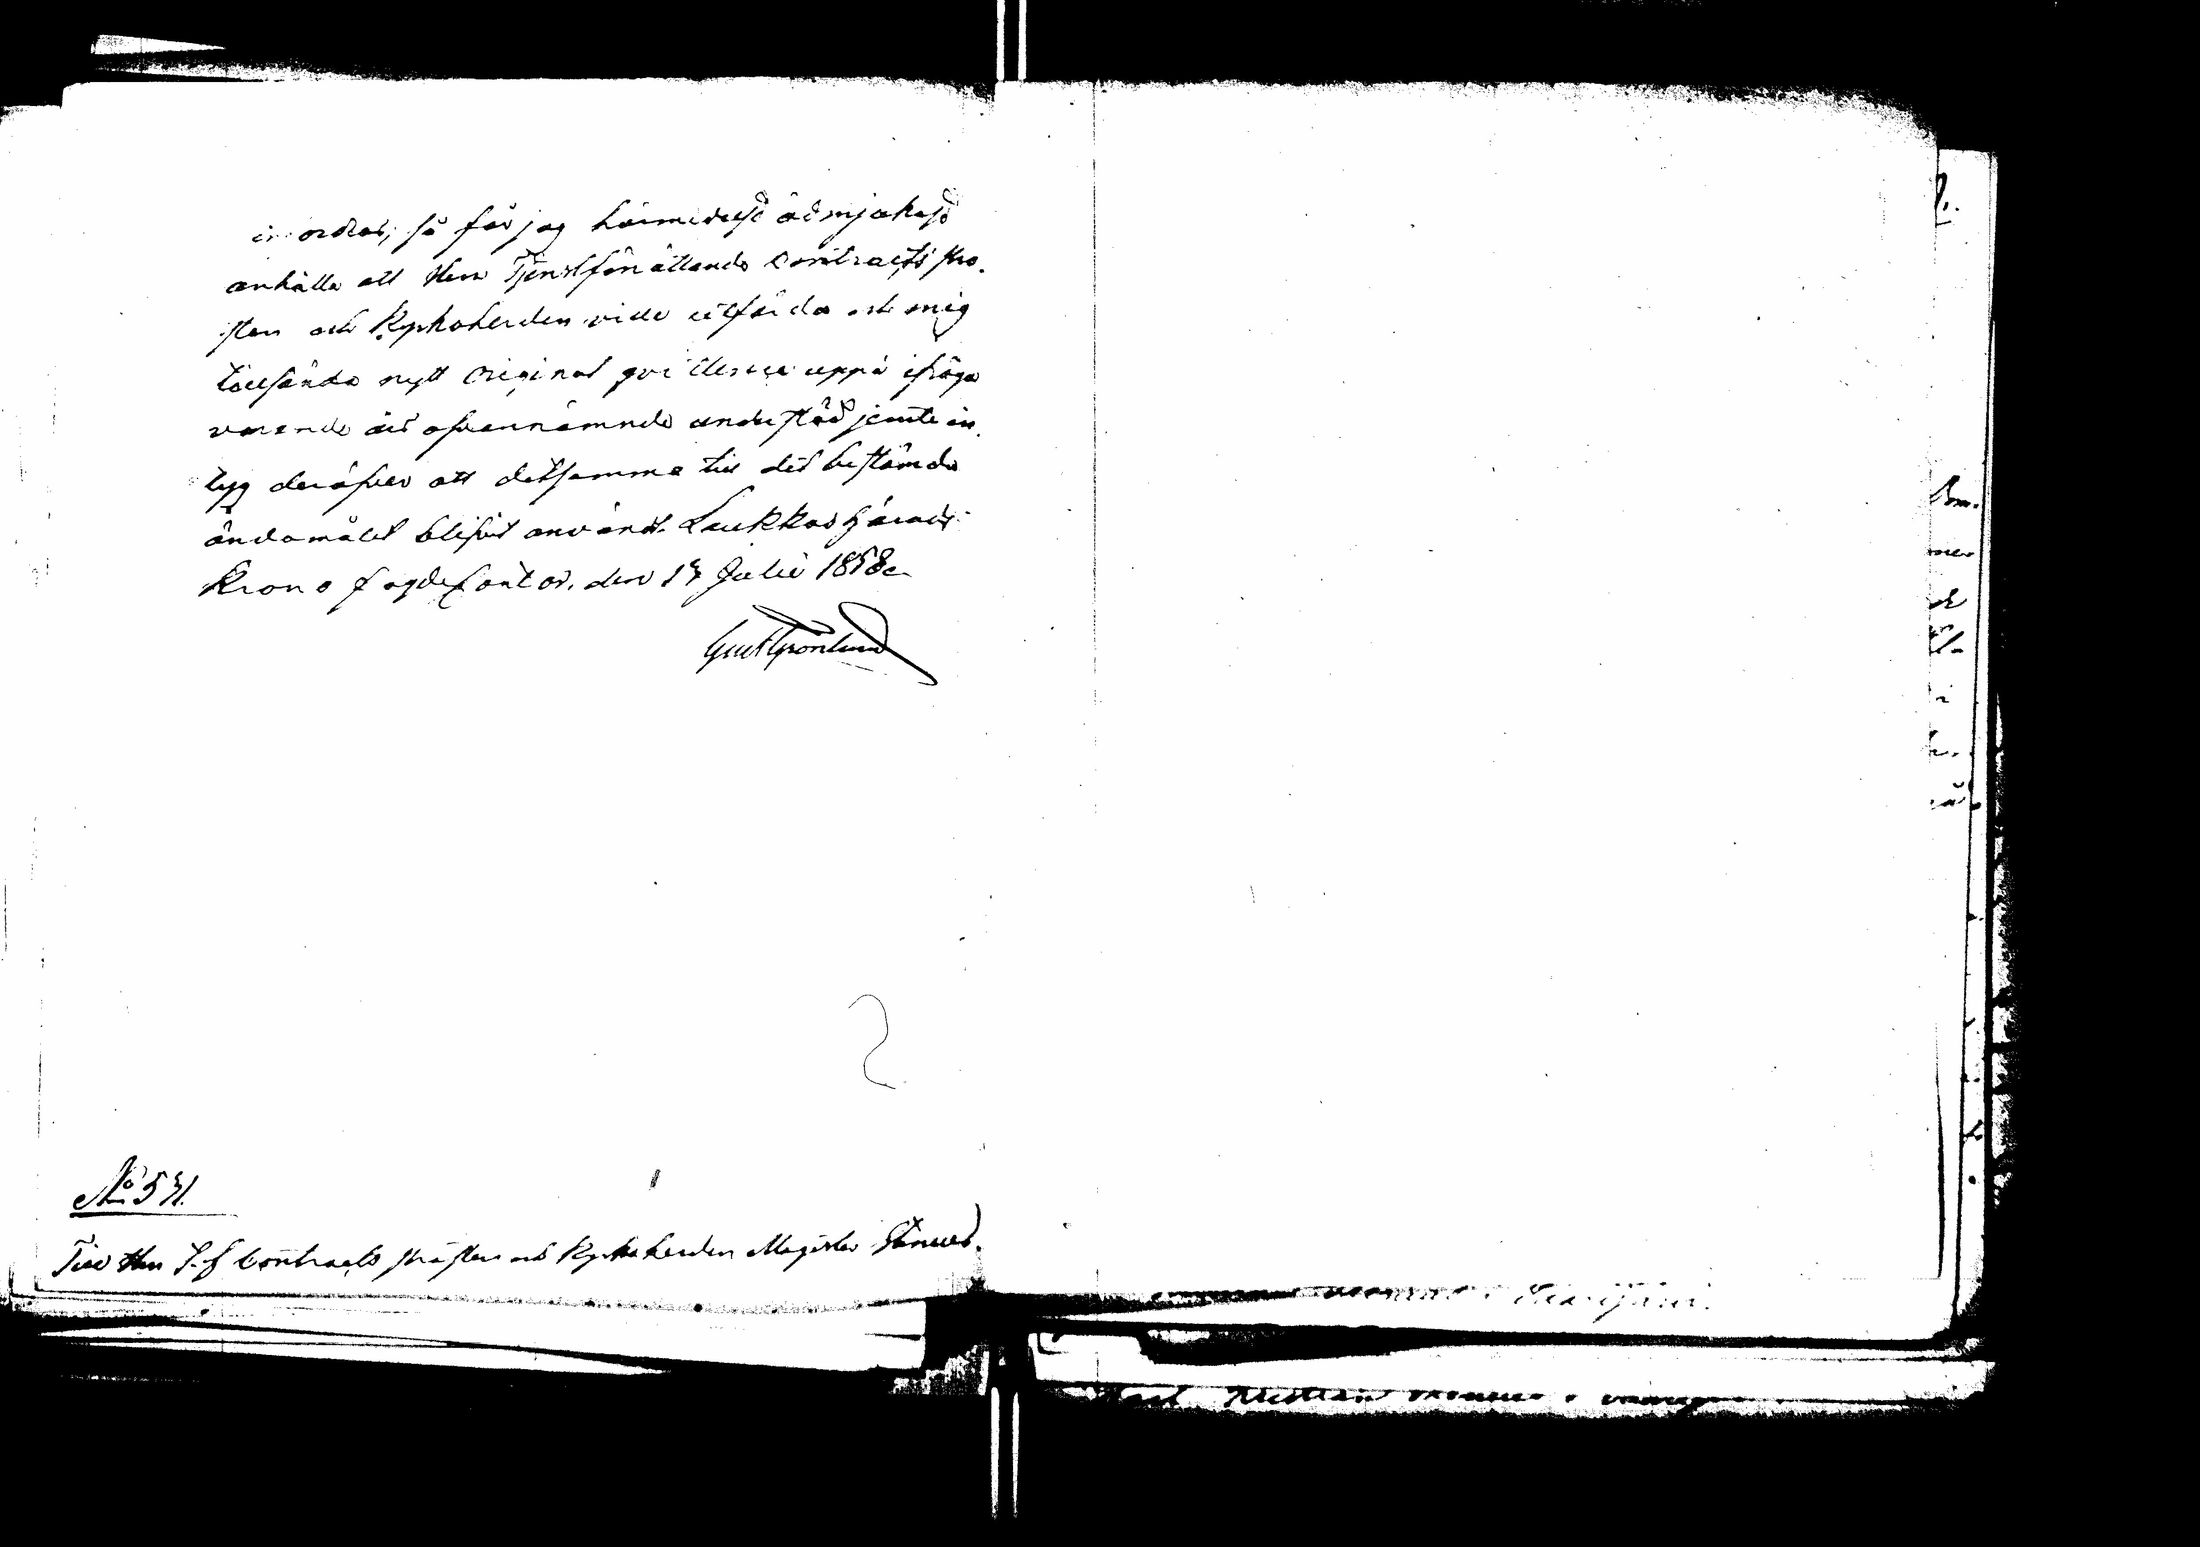 inordras; så får jag härmedelst ödmjukast
anhålla att Herr Tjenstförrättande Contracts Pro-
sten och Kyrkoherden ville utfärda och mig
tillsända nytt Original qvittence uppå ifråga
varande års ofvannämnde understöd jemte in-
tyg deröfver att detsamma till det bestämda
ändamålet blifvit användt. Laukkas härads
Krono fogdekontor, den 17 Julii 1858.
Gust Grönlund
No 571.
Till Herr T.f Contracts Prosten och Kyrkoherden Magister